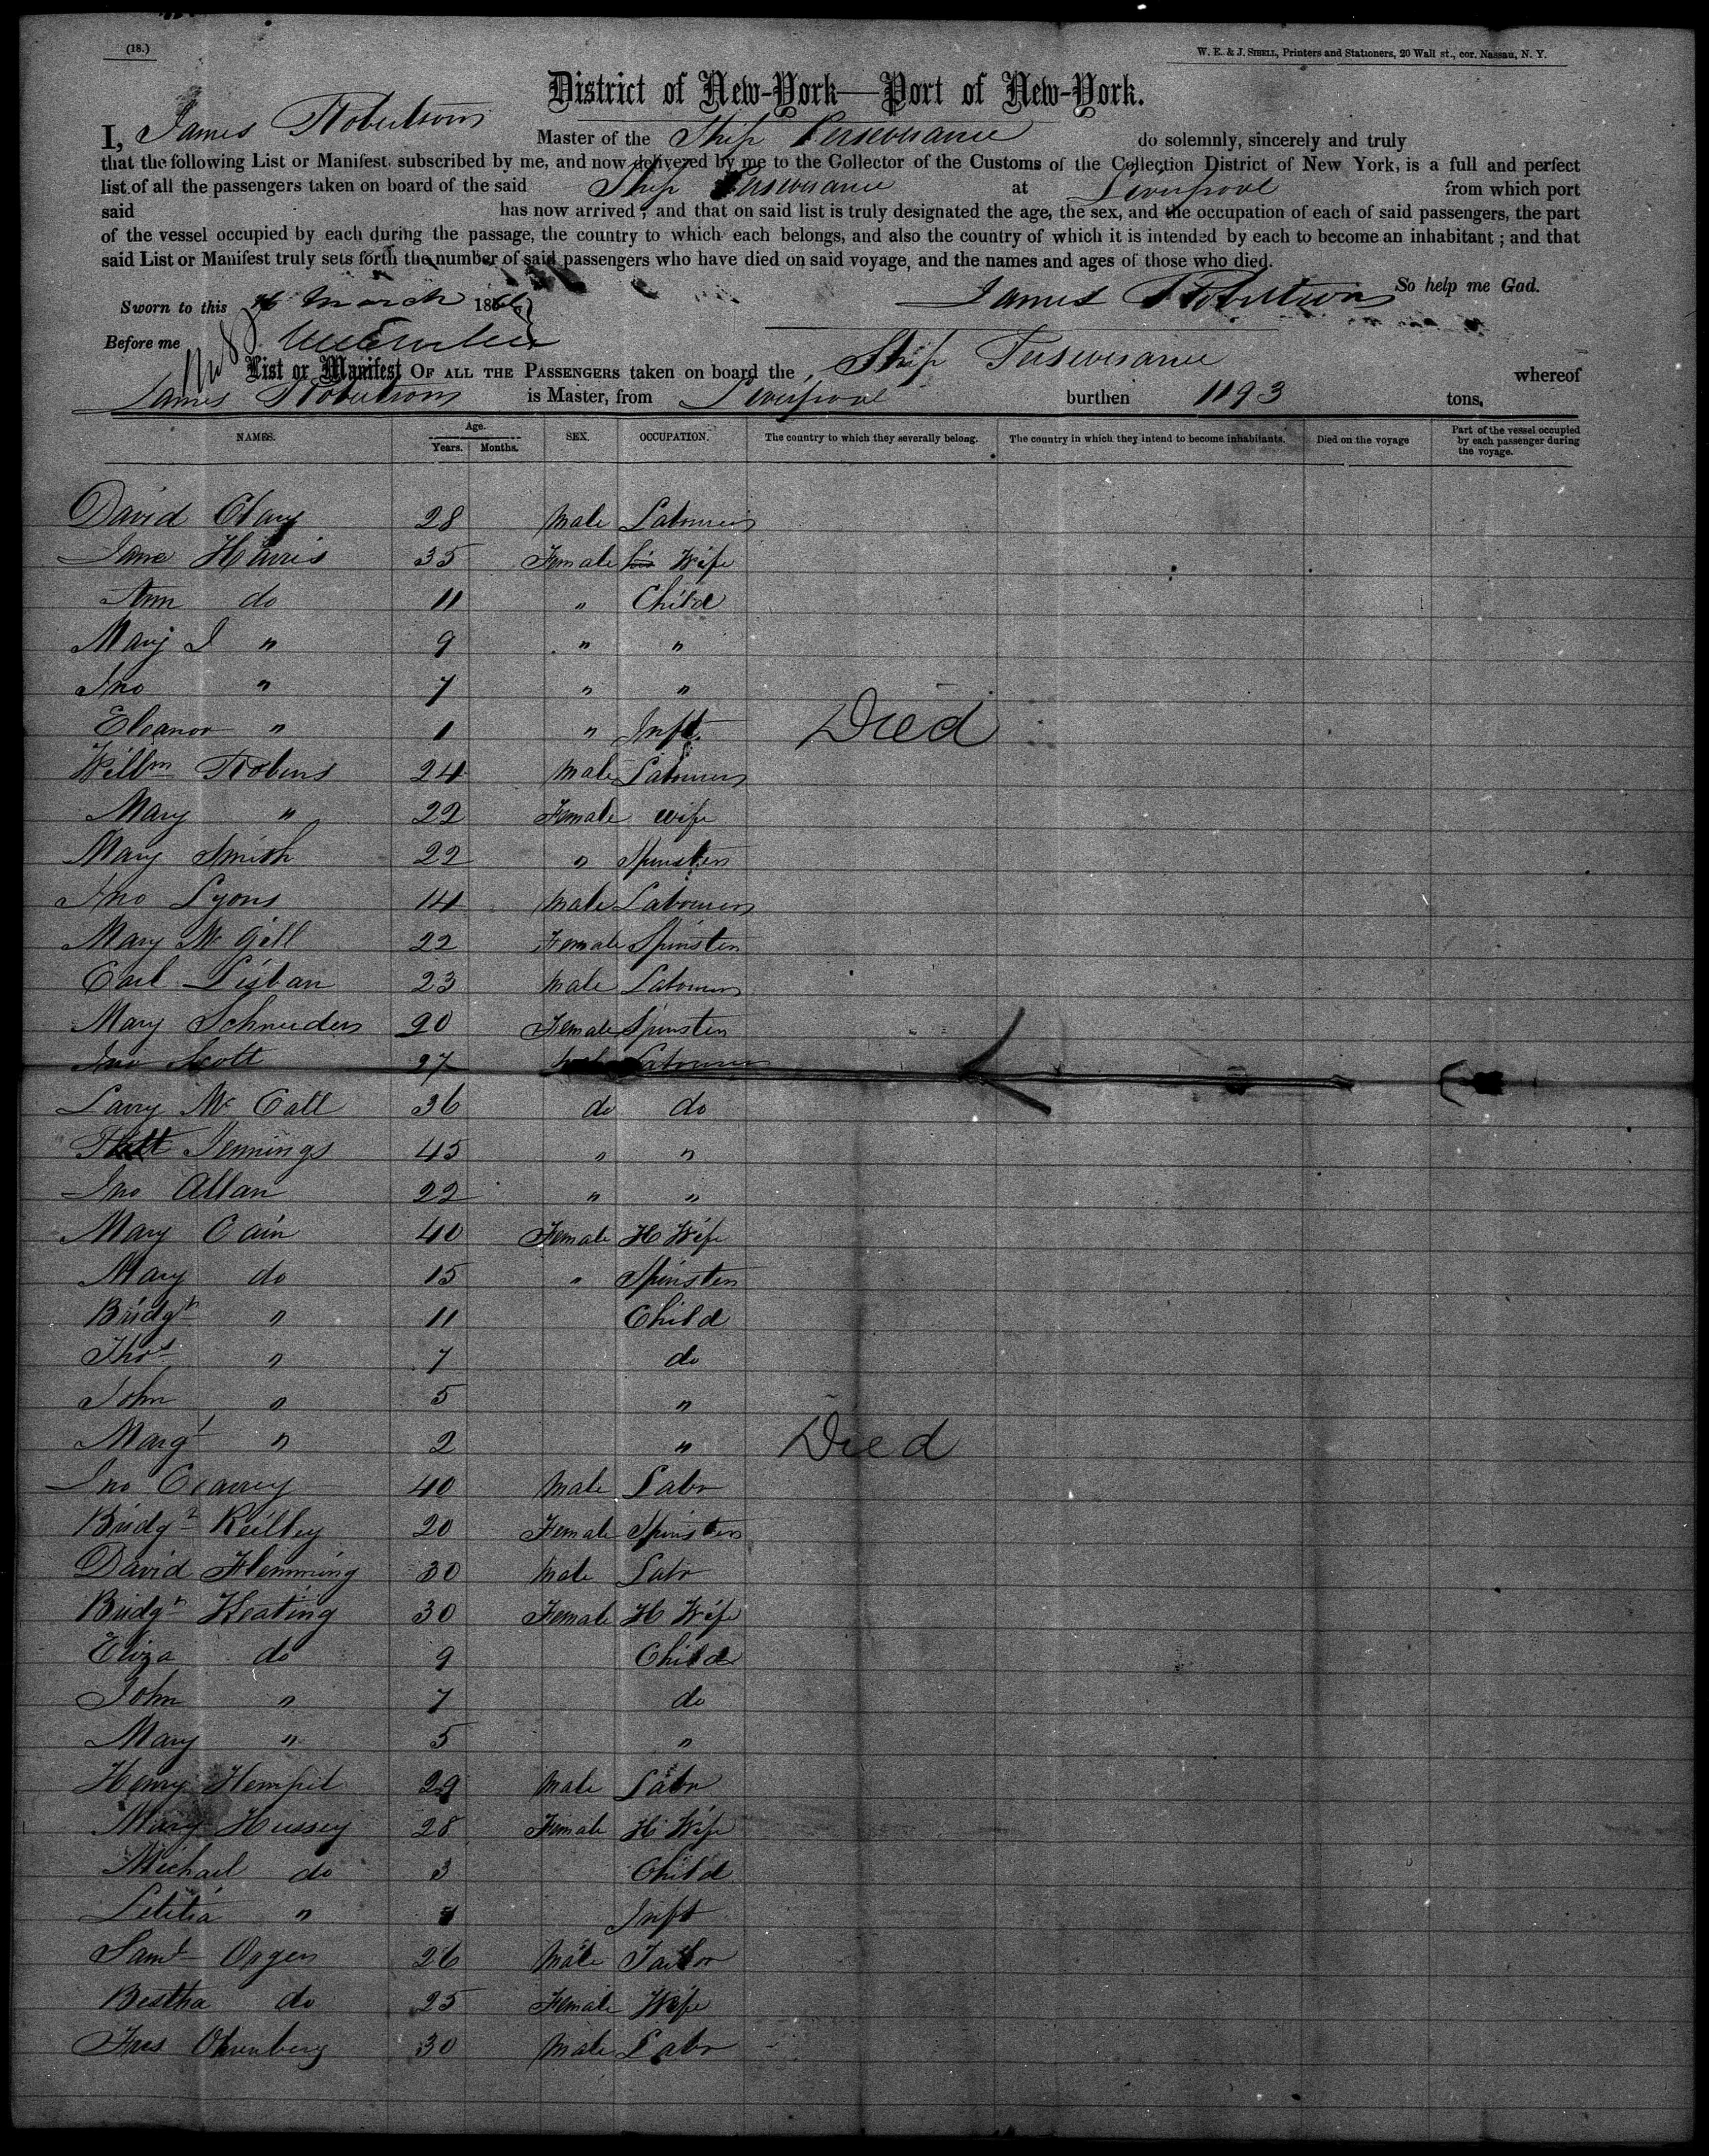 (18.)
W. E. & J. SIBELL, Printers and Stationers, 20 Wall st., cor. Nassau, N. Y.
District of New-York—Port of New-York.
I, James Robertson Master of the Ship Perseverance do solemnly, sincerely and truly
that the following List or Manifest, subscribed by me, and now delivered by me to the Collector of the Customs of the Collection District of New York, is a full and perfect
list of all the passengers taken on board of the said Ship Perseverance at Liverpool from which port
said has now arrived; and that on said list is truly designated the age, the sex, and the occupation of each of said passengers, the part
of the vessel occupied by each during the passage, the country to which each belongs, and also the country of which it is intended by each to become an inhabitant; and that
said List or Manifest truly sets forth the number of said passengers who have died on said voyage, and the names and ages of those who died.
So help me God.
Sworn to this March 186 James Robertson
Before me
List or Manifest OF ALL THE PASSENGERS taken on board the Ship Perseverance whereof
James Robertson is Master, from Liverpool burthen 1193 tons.
NAMES. Age. Years. Months. SEX. OCCUPATION. The country to which they severally belong. The country in which they intend to become inhabitants. Died on the voyage Part of the vessel occupied by each passenger during the voyage.
David Clary 28 Male Labourer
Jane Harris 35 Female his Wife
Ann do 11 " Child
Mary J " 9 " "
Jno " 7 " "
Eleanor " 1 " Inft. Died
Willm Robins 24 Male Labourer
Mary " 22 Female wife
Mary Smith 22 " Spinster
Jno Lyons 14 Male Labourer
Mary McGill 22 Female Spinster
Carl Lisban 23 Male Labourer
Mary Schneider 20 Female Spinster
Jno Scott 27 Labourer
Larry McCall 36 do do
Jennings 45 " "
Jno Allan 22 " "
Mary Cain 40 Female H Wife
Mary do 15 " Spinster
Bridgt " 11 Child
Thos " 7 do
John " 5 "
Margt " 2 " Died
Jno 40 Male Labr
Bridgt Reilley 20 Female Spinster
David Flemming 30 Male Labr
Bridgt Keating 30 Female H Wife
Eliza do 9 Child
John " 7 do
Mary " 5 "
Henry Hempil 29 Male Labr
Mary Hussey 28 Female H Wife
Michael do 3 Child
Letitia " Inft
Saml Orgen 26 Male Tailor
Bertha do 25 Female Wife
Fres 30 Male Labr